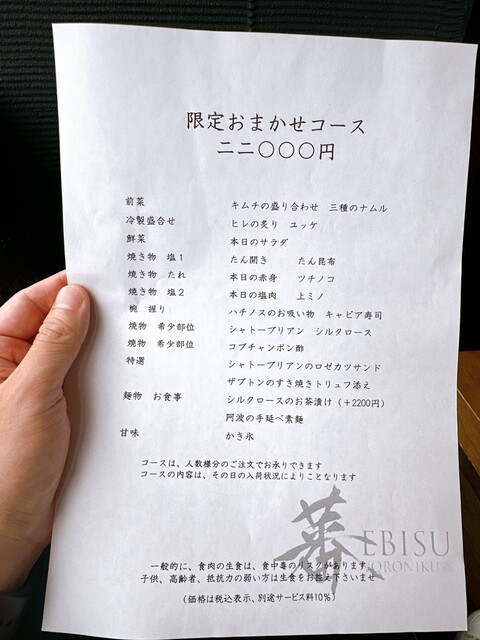 限定おまかせコース
二二〇〇〇円
前菜 キムチの盛り合わせ 三種のナムル
冷製盛合せ ヒレの炙り ユッケ
鮮菜 本日のサラダ
焼き物 塩1 たん開き たん昆布
焼き物 たれ 本日の赤身 ツチノコ
焼き物 塩2 本日の塩肉 上ミノ
椀 握り ハチノスのお吸い物 キャビア寿司
焼物 希少部位 シャトーブリアン シルクロース
焼物 希少部位 コプチャンポン酢
特選 シャトーブリアンのロゼカツサンド
ザブトンのすき焼きトリュフ添え
麺物 お食事 シルクロースのお茶漬け（+2200円）
阿波の手延べ素麺
甘味 かき氷
コースは、人数様分のご注文でお承りできます
コースの内容は、その日の入荷状況によりことなります
蕃 EBISU
YORONIKU
一般的に、食肉の生食は、食中毒のリスクがあります。
子供、高齢者、抵抗力の弱い方は生食をお控え下さいませ
（価格は税込表示、別途サービス料10％）